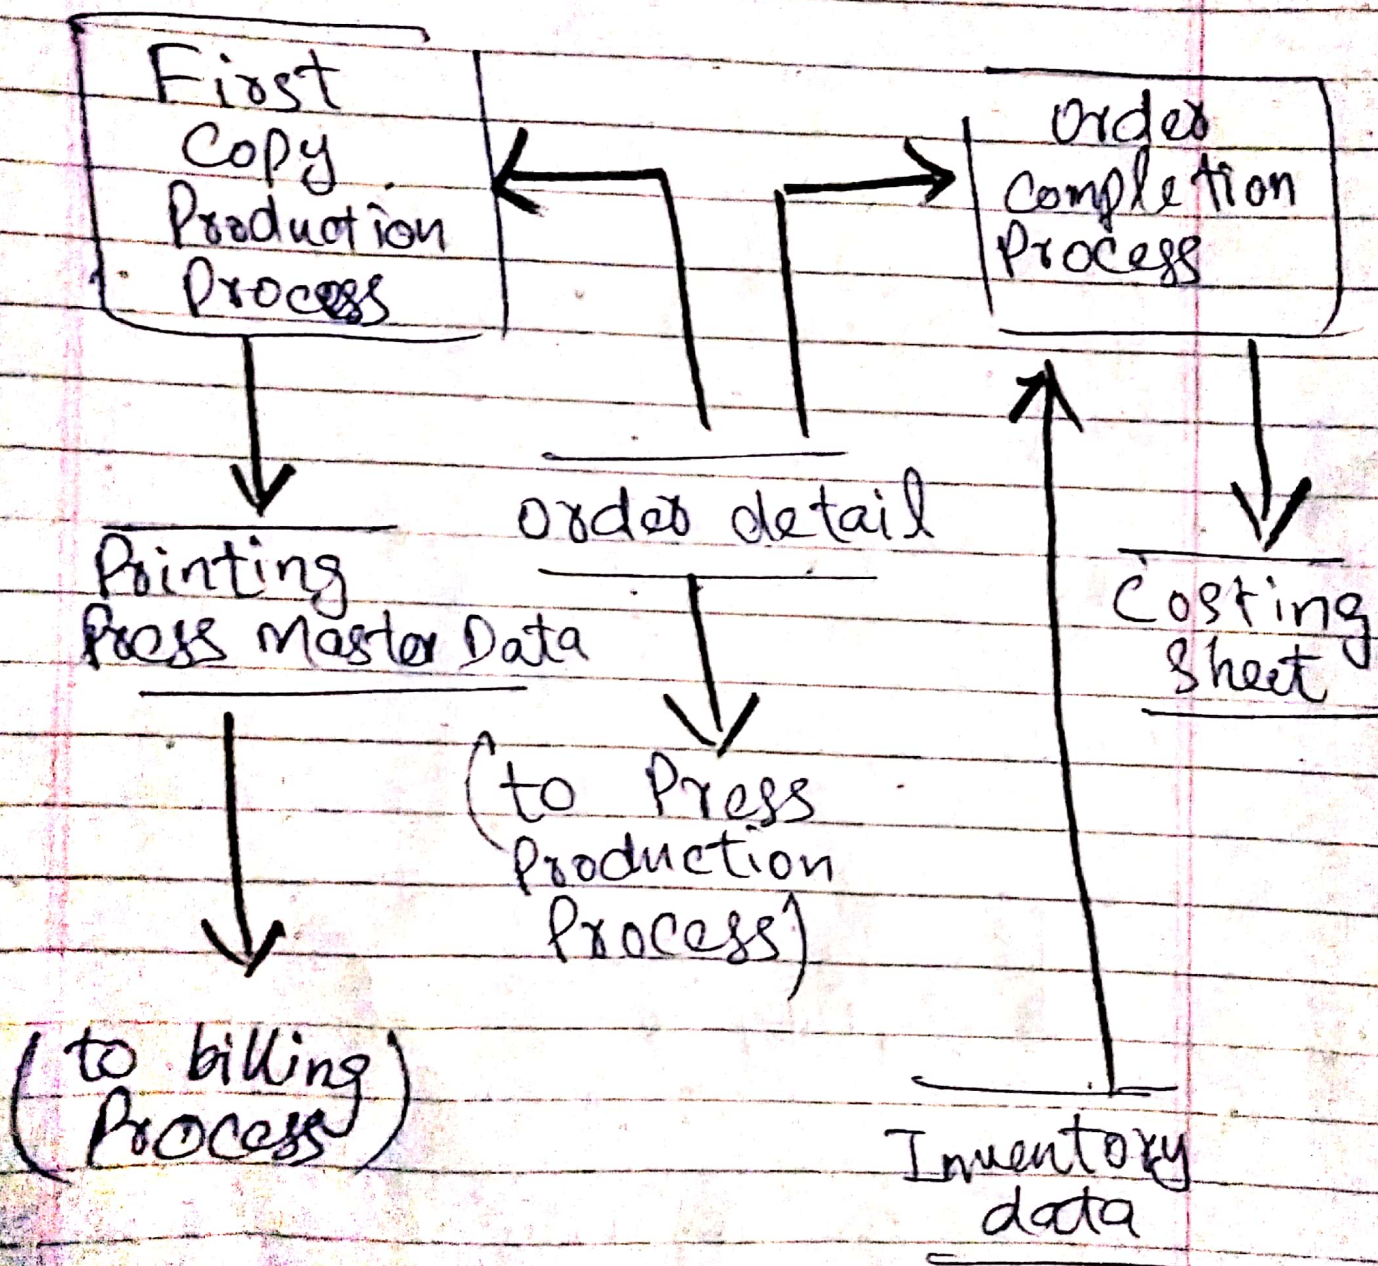 First
Copy
Production
Process
Order
Completion
Process
Order detail
Printing
Press Master Data
Costing
Sheet
(to Press
Production
Process)
(to billing
Process)
Inventory
data